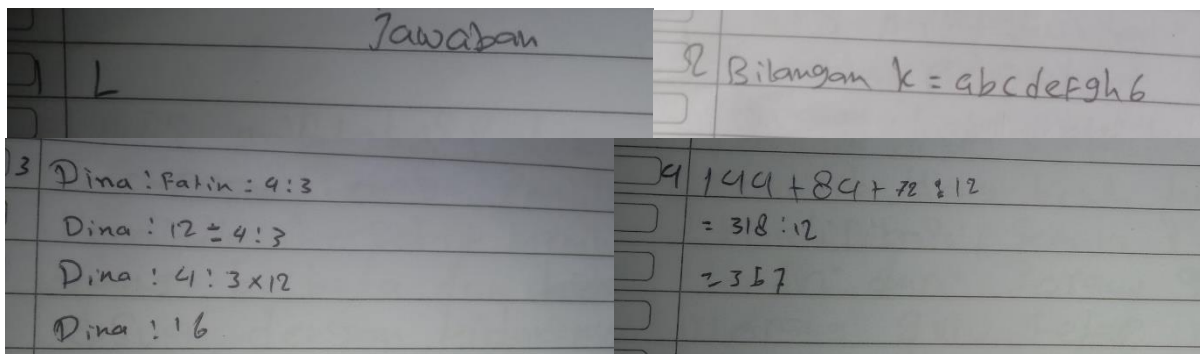 Jawaban
1 L
2 Bilangan k = abcdefgh6
3 Dina : Farin = 4:3
Dina : 12 = 4:3
Dina : 4 : 3 x 12
Dina : 16
4 144 + 84 + 72 : 12
= 318 : 12
= 357